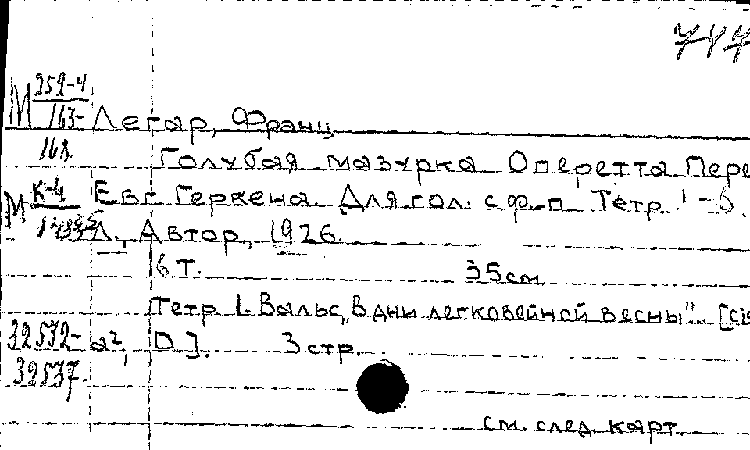 747
М 252-4
163-
Легар, Франц
168
Голубая мазурка Оперетта Пере
М К-4
Евг. Геркена. Для гол. с ф-п Тетр. 1-6.
Л., Автор, 1926.
6 т. 35 см
Тетр. 1. Вальс „В дни легковейной весны". [cis
32532- а², D]. 3 стр.
32537.
см. след. карт.